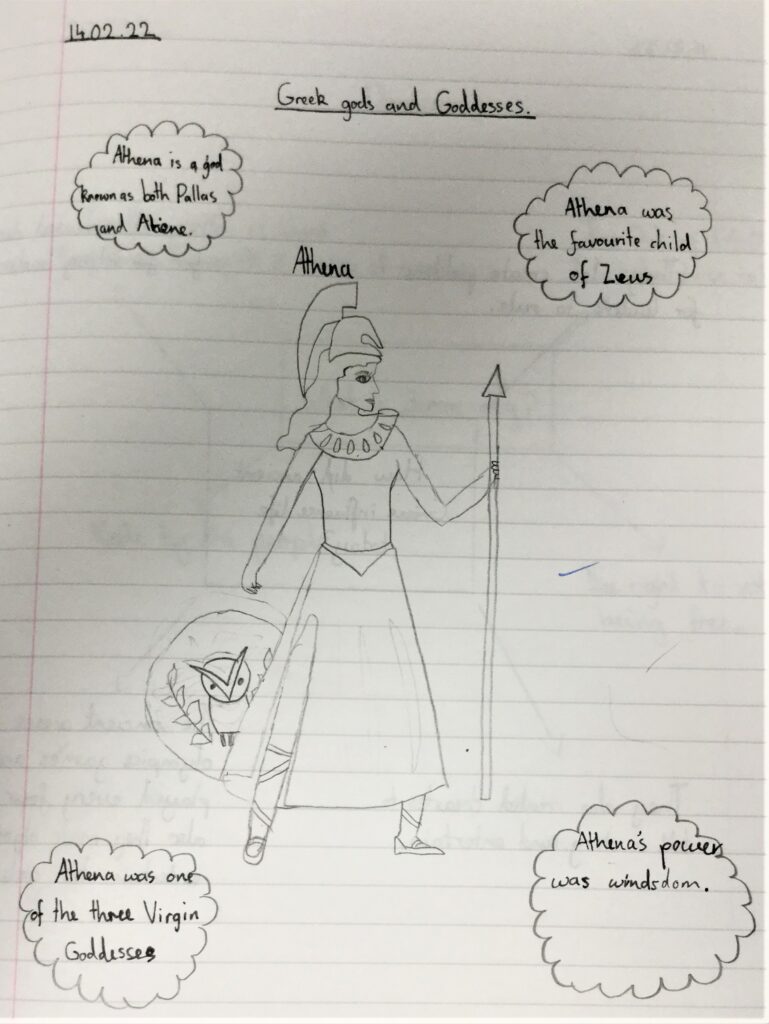 14.02.22
Greek gods and Goddesses.
Athena is a god
known as both Pallas
and Atiene.
Athena was
the favourite child
of Zeus
Athena
Athena was one
of the three Virgin
Goddesses
Athena's power
was windsdom.